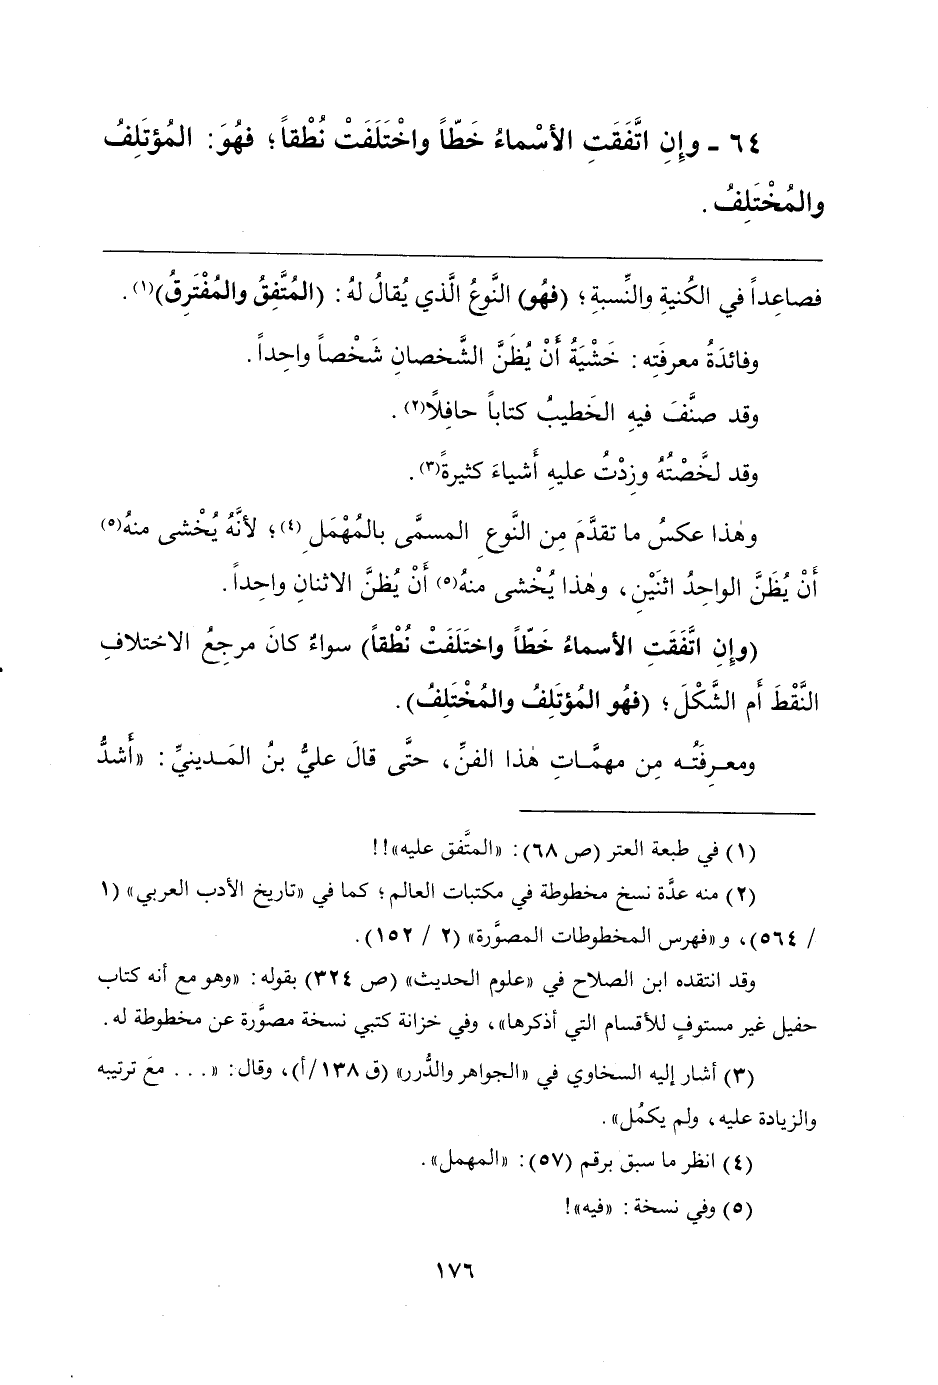 ٦٤ ـ وإِنِ اتَّفَقَتِ الأسْماءُ خَطّاً واخْتَلَفَتْ نُطْقاً؛ فهُوَ: المُؤتَلِفُ
والمُخْتَلِفُ.
فصاعِداً في الكُنيةِ والنِّسبةِ؛ (فهُو) النَّوعُ الَّذي يُقالُ لهُ: (المُتَّفِقُ والمُفْتَرِقُ)(١).
وفائدَةُ معرفَتِه: خَشْيَةُ أَنْ يُظَنَّ الشَّخصانِ شَخْصاً واحِداً.
وقد صنَّفَ فيهِ الخَطيبُ كتاباً حافِلًا(٢).
وقد لخَّصْتُهُ وزِدْتُ عليهِ أَشياءَ كثيرةً(٣).
وهٰذا عكسُ ما تقدَّمَ مِن النَّوعِ المسمَّى بالمُهْمَلِ(٤)؛ لأنَّهُ يُخْشى منهُ(٥)
أَنْ يُظَنَّ الواحِدُ اثنَيْنِ، وهٰذا يُخْشى منهُ(٥) أَنْ يُظنَّ الاثنانِ واحِداً.
(وإِنِ اتَّفَقَتِ الأسماءُ خَطّاً واختَلَفَتْ نُطْقاً) سواءٌ كانَ مرجِعُ الاختلافِ
النَّقْطَ أَم الشَّكْلَ؛ (فهُو المُؤتَلِفُ والمُخْتَلِفُ).
ومعرِفَتُه مِن مهمَّاتِ هٰذا الفنِّ، حتَّى قالَ عليُّ بنُ المَدينيِّ: «أَشدُّ
(١) في طبعة العتر (ص ٦٨): «المتَّفق عليه»!!
(٢) منه عدَّة نسخ مخطوطة في مكتبات العالم؛ كما في «تاريخ الأدب العربي» (١
/ ٥٦٤)، و«فهرس المخطوطات المصوَّرة» (٢ / ١٥٢).
وقد انتقده ابن الصلاح في «علوم الحديث» (ص ٣٢٤) بقوله: «وهو مع أنه كتاب
حفيل غير مستوفٍ للأقسام التي أذكرها»، وفي خزانة كتبي نسخة مصوَّرة عن مخطوطة له.
(٣) أشار إليه السخاوي في «الجواهر والدُّرر» (ق ١٣٨/أ)، وقال: «... معَ ترتيبه
والزيادة عليه، ولم يكمُل».
(٤) انظر ما سبق برقم (٥٧): «المهمل».
(٥) وفي نسخة: «فيه»!
١٧٦